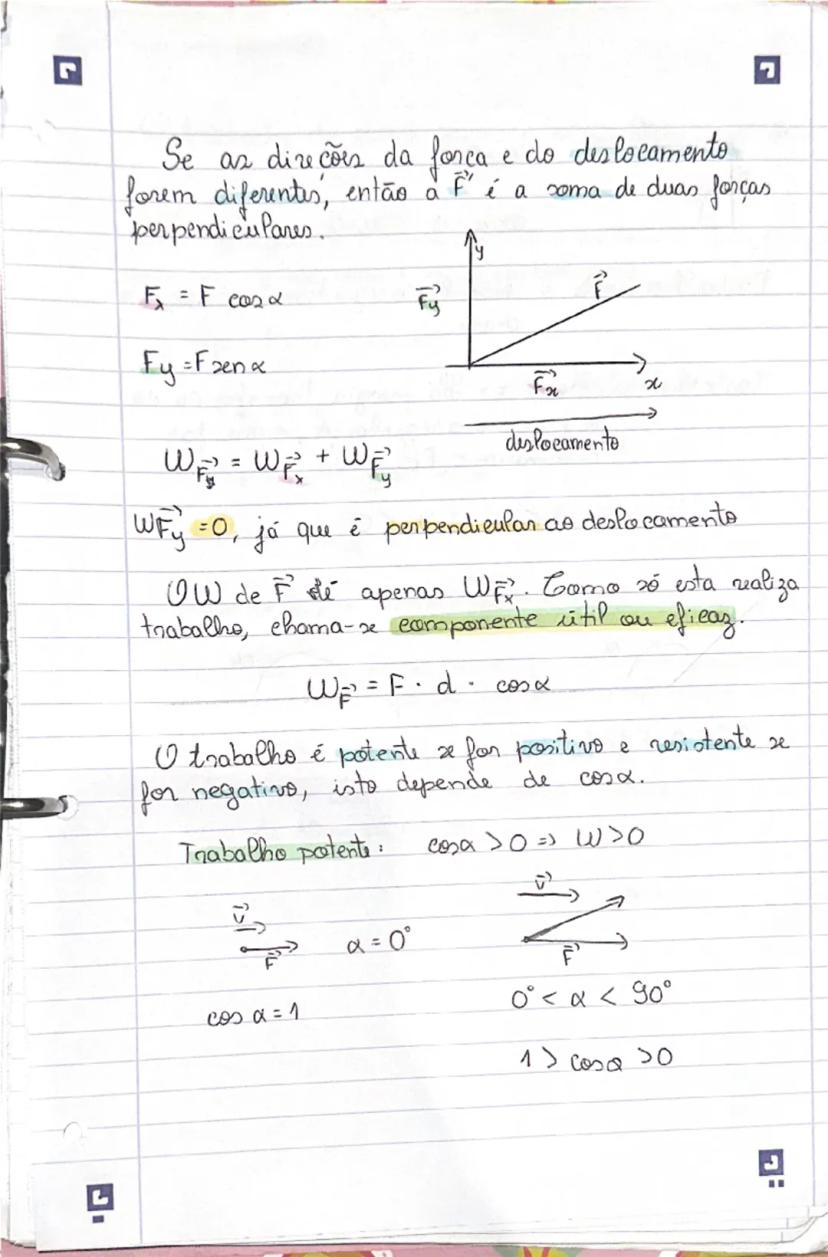 Se as direções da força e do deslocamento
forem diferentes, então a F⃗ é a soma de duas forças
perpendiculares.
y
Fₓ = F cosα
F⃗y
F⃗
Fy = F senα
F⃗x
x
deslocamento
W F⃗ = W F⃗ₓ + W F⃗y
W F⃗y = 0, já que é perpendicular ao deslocamento
O W de F⃗ é apenas W F⃗ₓ. Como só esta realiza
trabalho, chama-se componente útil ou eficaz.
W F⃗ = F · d · cosα
O trabalho é potente se for positivo e resistente se
for negativo, isto depende de cosα.
Trabalho potente: cosα > 0 => W > 0
v⃗
F⃗
α = 0°
v⃗
F⃗
cos α = 1
0° < α < 90°
1 > cosα > 0